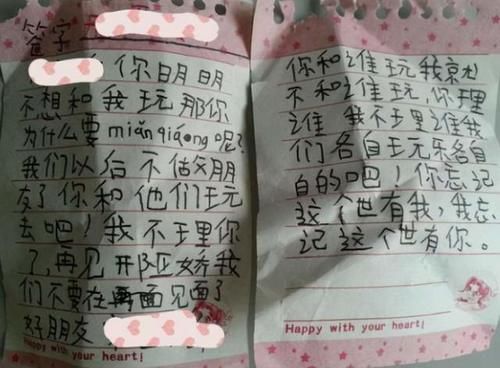 签字
你明明
不想和我玩那你
为什么要miǎnqiáong呢?
我们以后不做朋
友了你和他们玩
去吧!我不理你
了,再见
我
们不要在再面见面了
好朋友
Happy with your heart!
你和谁玩我
不和谁玩,你理
谁 我不理谁我
们各自玩
各自
自的吧!你忘记
这个世有我,我忘
记这个世有你。
Happy with your heart!